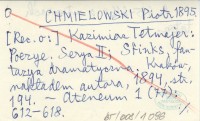 o CHMIELOWSKI Piotr 1895
[Rec. o:] Kazimierz Tetmajer:
Poezye. Serya II; Sfinks, fan-
tazya dramatyczna. Kraków,
nakładem autora, 1894, str.
194. – Ateneum 1 (77):
612-618.